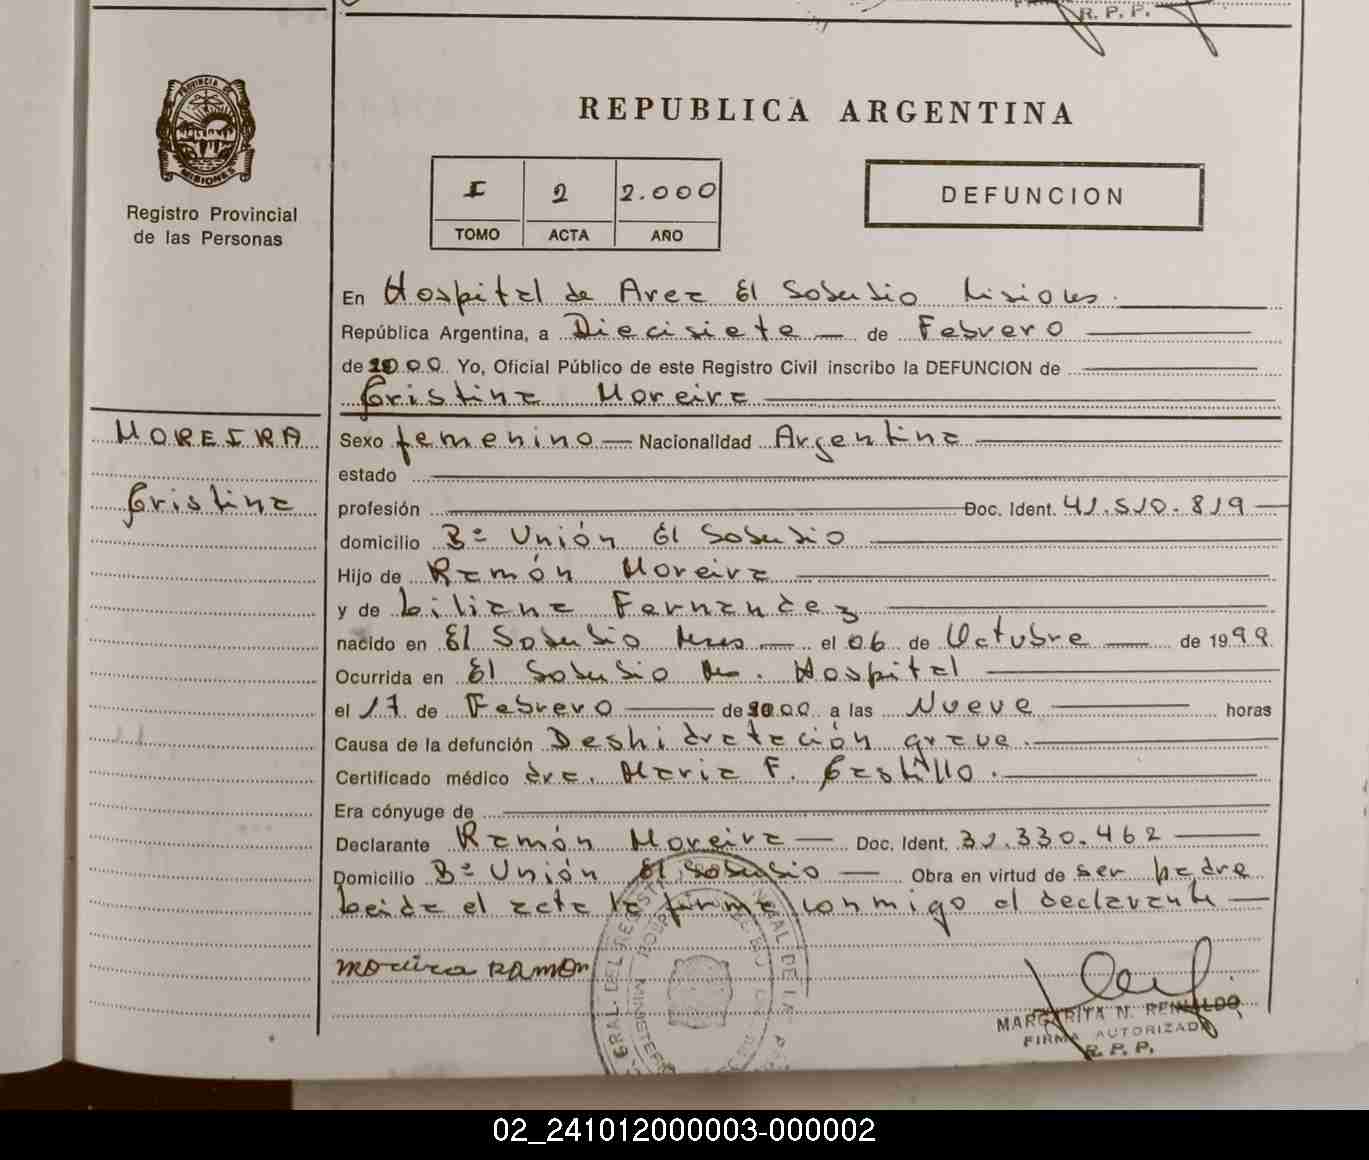 R. P. P.
PROVINCIA DE
MISIONES
Registro Provincial
de las Personas
REPUBLICA ARGENTINA
I 2 2.000
TOMO ACTA AÑO
DEFUNCION
En Hospital de Area El Soberbio Misiones.
República Argentina, a Diecisiete de Febrero
de 2000 Yo, Oficial Público de este Registro Civil inscribo la DEFUNCION de
Cristina Moreira
MOREIRA
Cristina
Sexo femenino Nacionalidad Argentina
estado
profesión Doc. Ident. 41.510.819
domicilio Bº Unión El Soberbio
Hijo de Ramón Moreira
y de Liliana Fernandez
nacido en El Soberbio Mnes el 06 de Octubre de 1999
Ocurrida en El Soberbio Mn. Hospital
el 17 de Febrero de 2000 a las Nueve horas
Causa de la defunción Deshidratación grave.
Certificado médico dra. Maria F. Castillo.
Era cónyuge de
Declarante Ramón Moreira Doc. Ident. 31.330.462
Domicilio Bº Unión El Soberbio Obra en virtud de ser padre
Leida el acta la firma conmigo el declarante
Moreira RAMON
MARGARITA N. REINALDO
FIRMA AUTORIZADA
R. P. P.
02_241012000003-000002